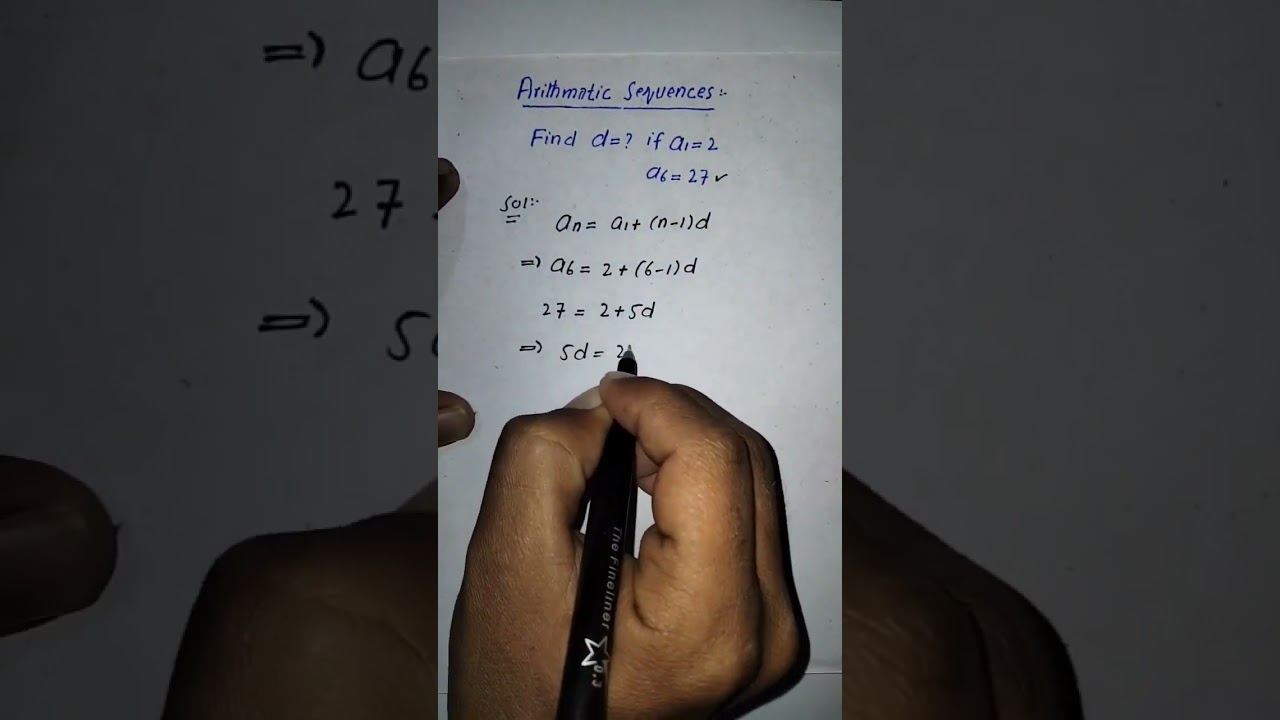 Arithmatic Sequences:-
Find d=? if a₁=2
a₆=27✓
Sol:-
aₙ= a₁+(n-1)d
=> a₆= 2+(6-1)d
27 = 2+5d
=> 5d= 2
The Fineliner
0.3
=> a₆
27
=> 5